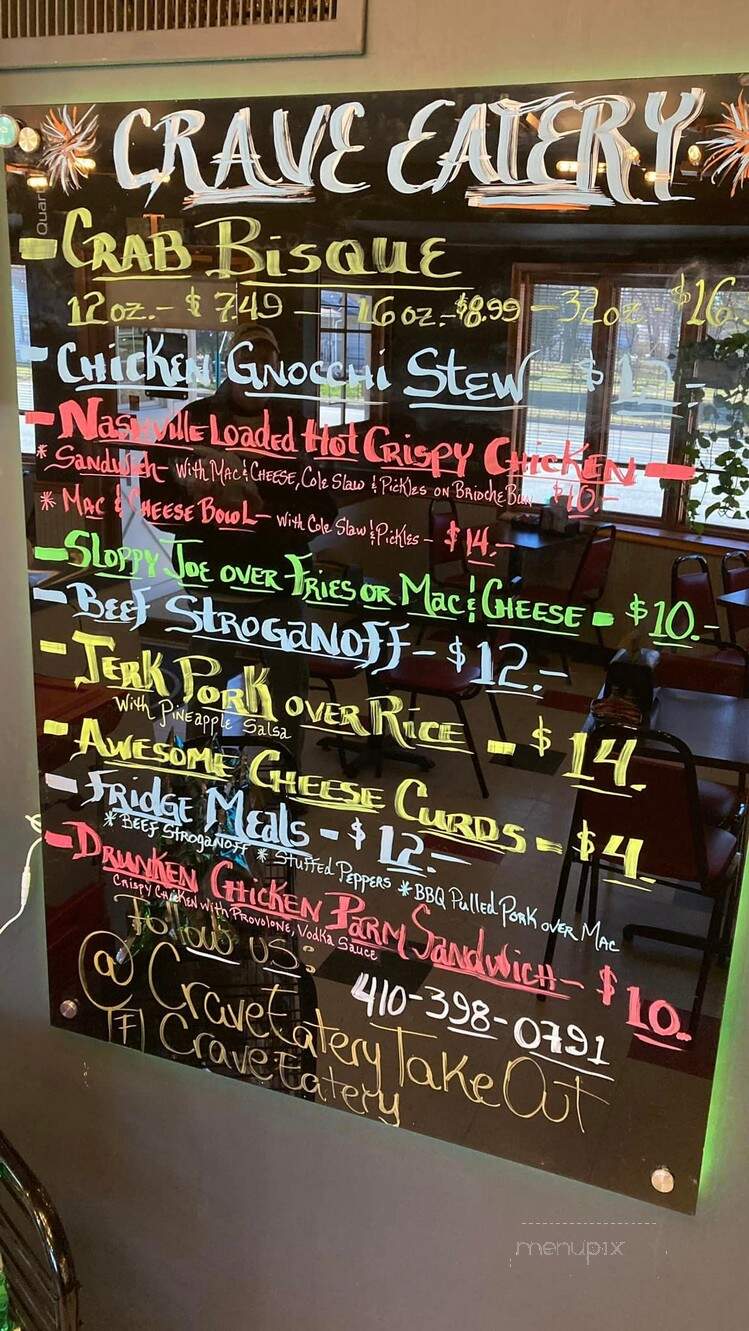 CRAVE EATERY
- CRAB BISQUE
12 oz. - $7.49 - 16 oz. - $8.99 - 32 oz - $16.
- CHICKEN GNOCCHI STEW $12.-
- NASHVILLE LOADED HOT CRISPY CHICKEN -
* SANDWICH - WITH MAC & CHEESE, COLE SLAW & PICKLES ON BRIOCHE BUN $10.-
* MAC & CHEESE BOWL - WITH COLE SLAW & PICKLES - $14.-
- SLOPPY JOE OVER FRIES OR MAC & CHEESE - $10.-
- BEEF STROGANOFF - $12.-
- JERK PORK OVER RICE - $14.
WITH PINEAPPLE SALSA
- AWESOME CHEESE CURDS - $4.
- FRIDGE MEALS - $12.-
* BEEF STROGANOFF * STUFFED PEPPERS * BBQ PULLED PORK OVER MAC
- DRUNKEN CHICKEN PARM SANDWICH - $10.
CRISPY CHICKEN WITH PROVOLONE, VODKA SAUCE
Follow us:
410-398-0791
@CraveEateryTakeOut
f CraveEatery
menupix